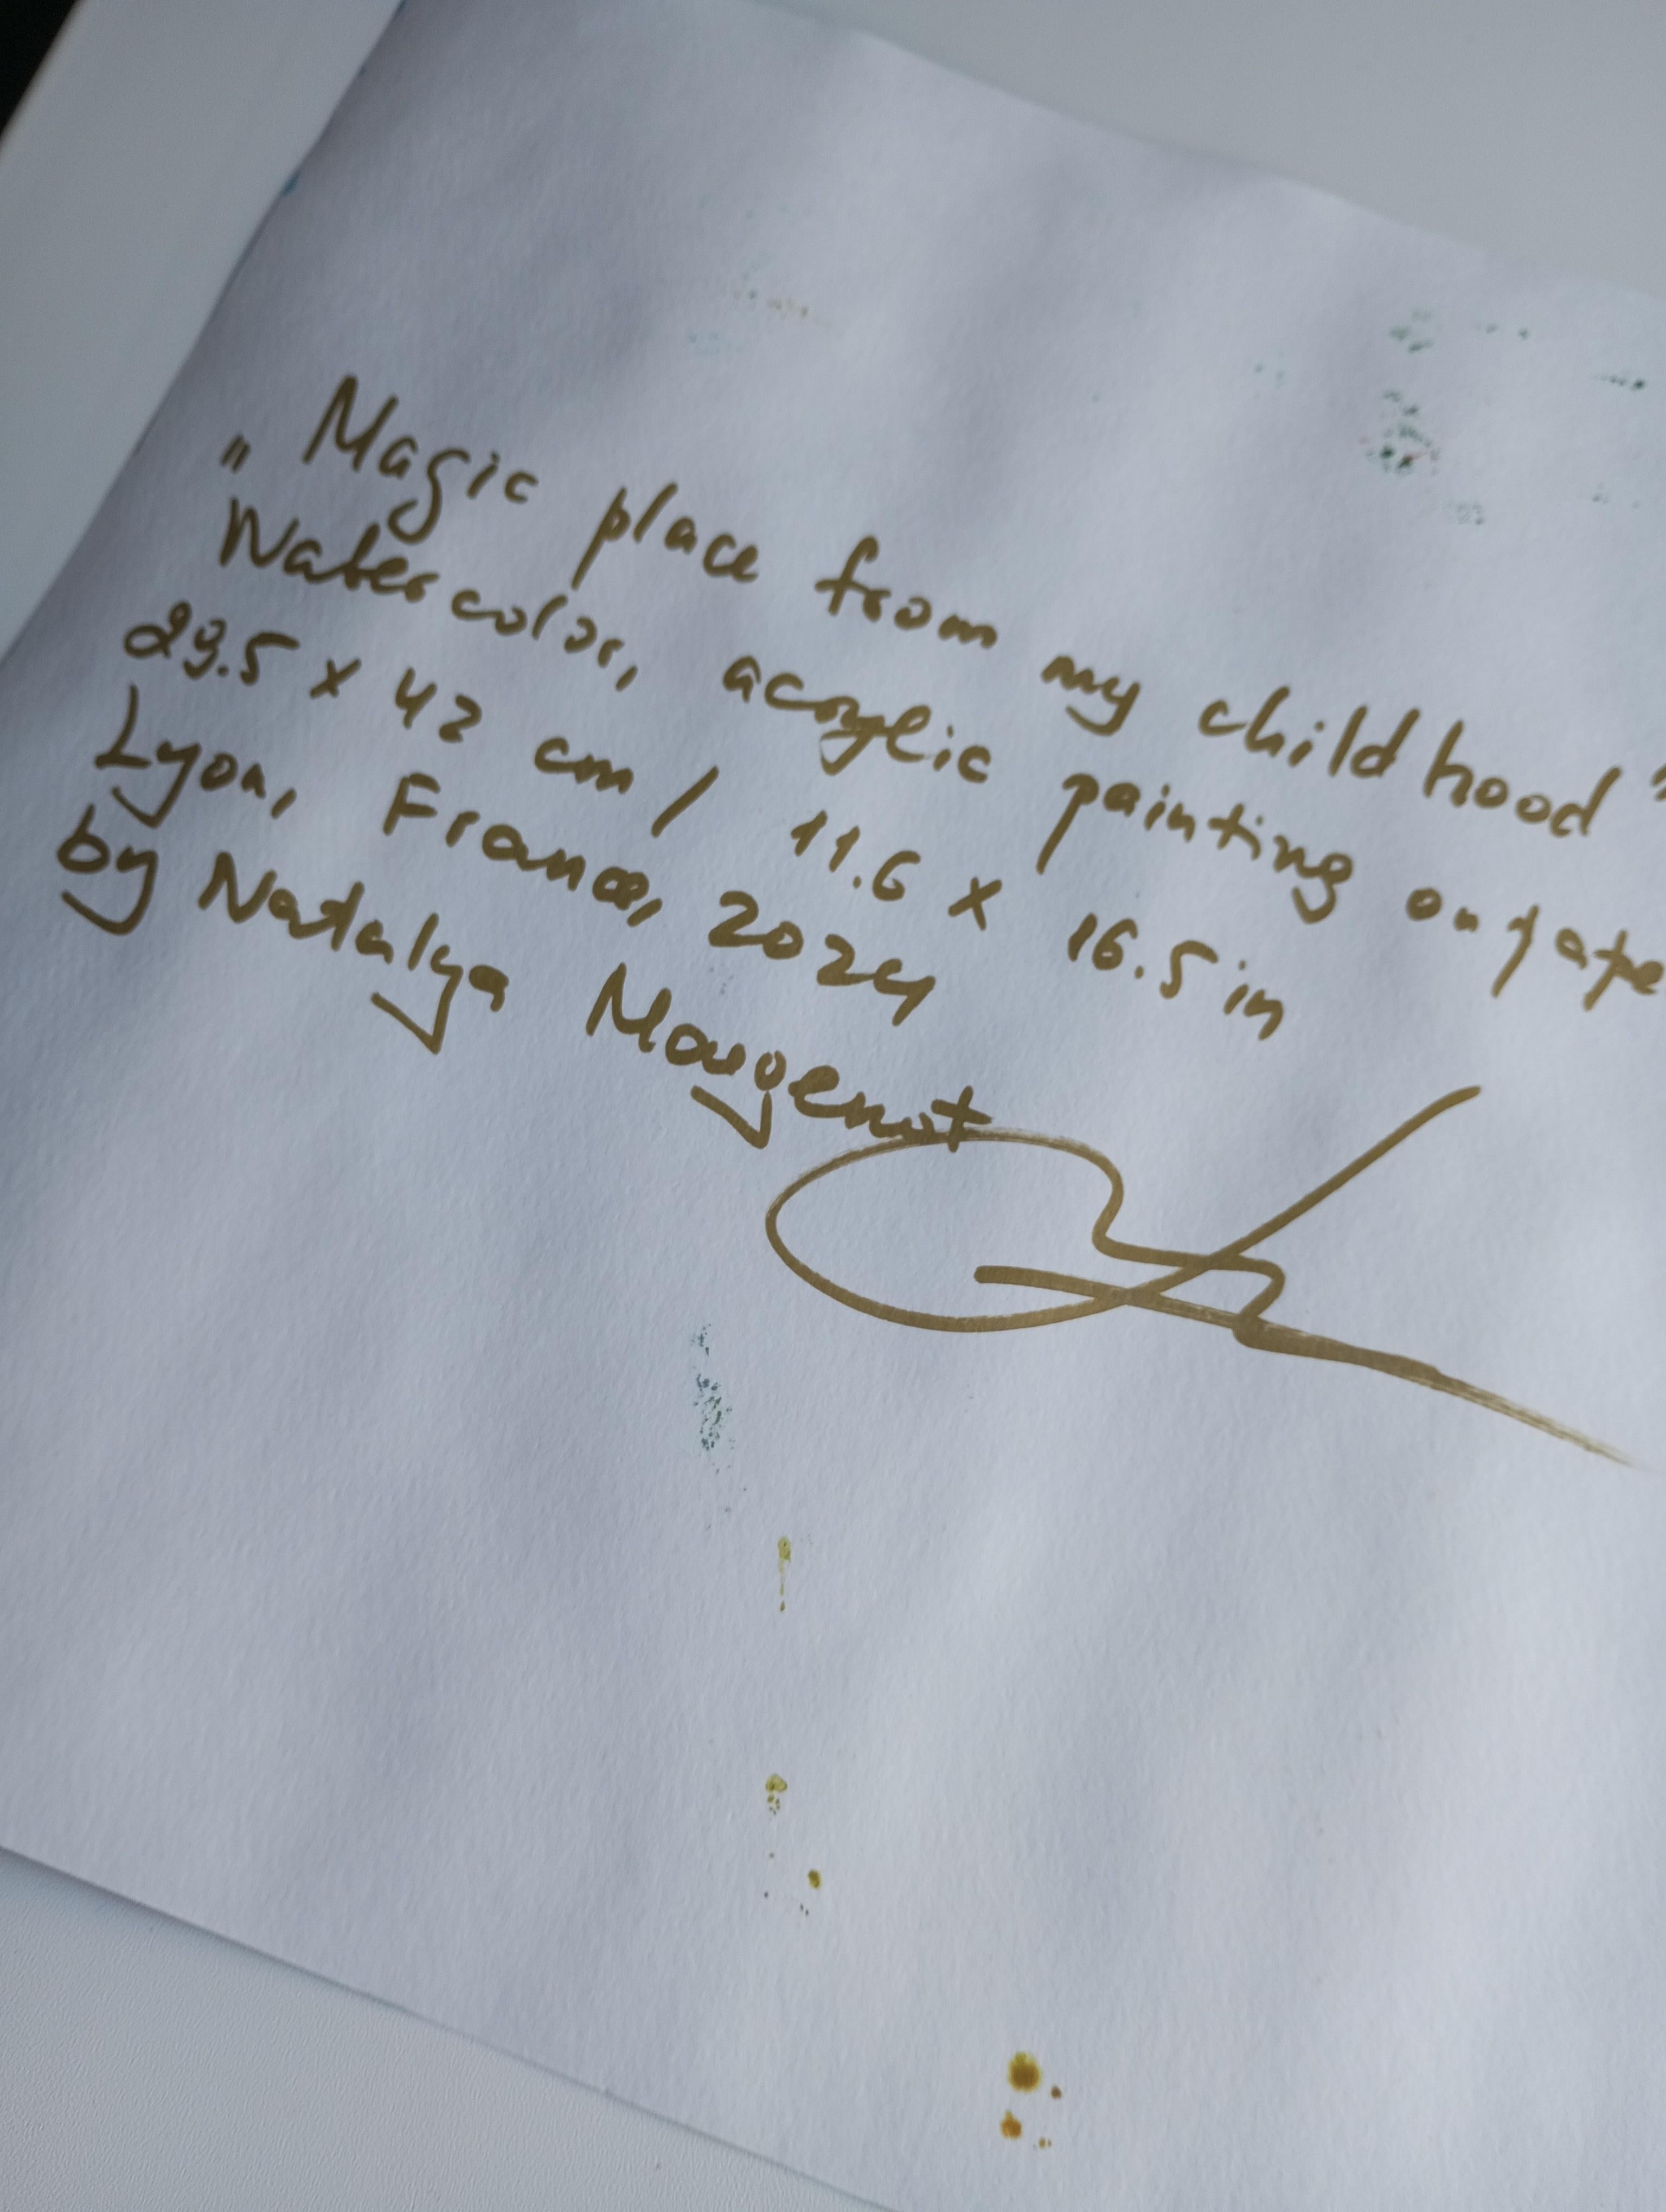 „Magic place from my childhood"
Watercolor, acrylic painting on pape
29.5 x 42 cm / 11.6 x 16.5 in
Lyon, France, 2024
by Natalya Mougenot